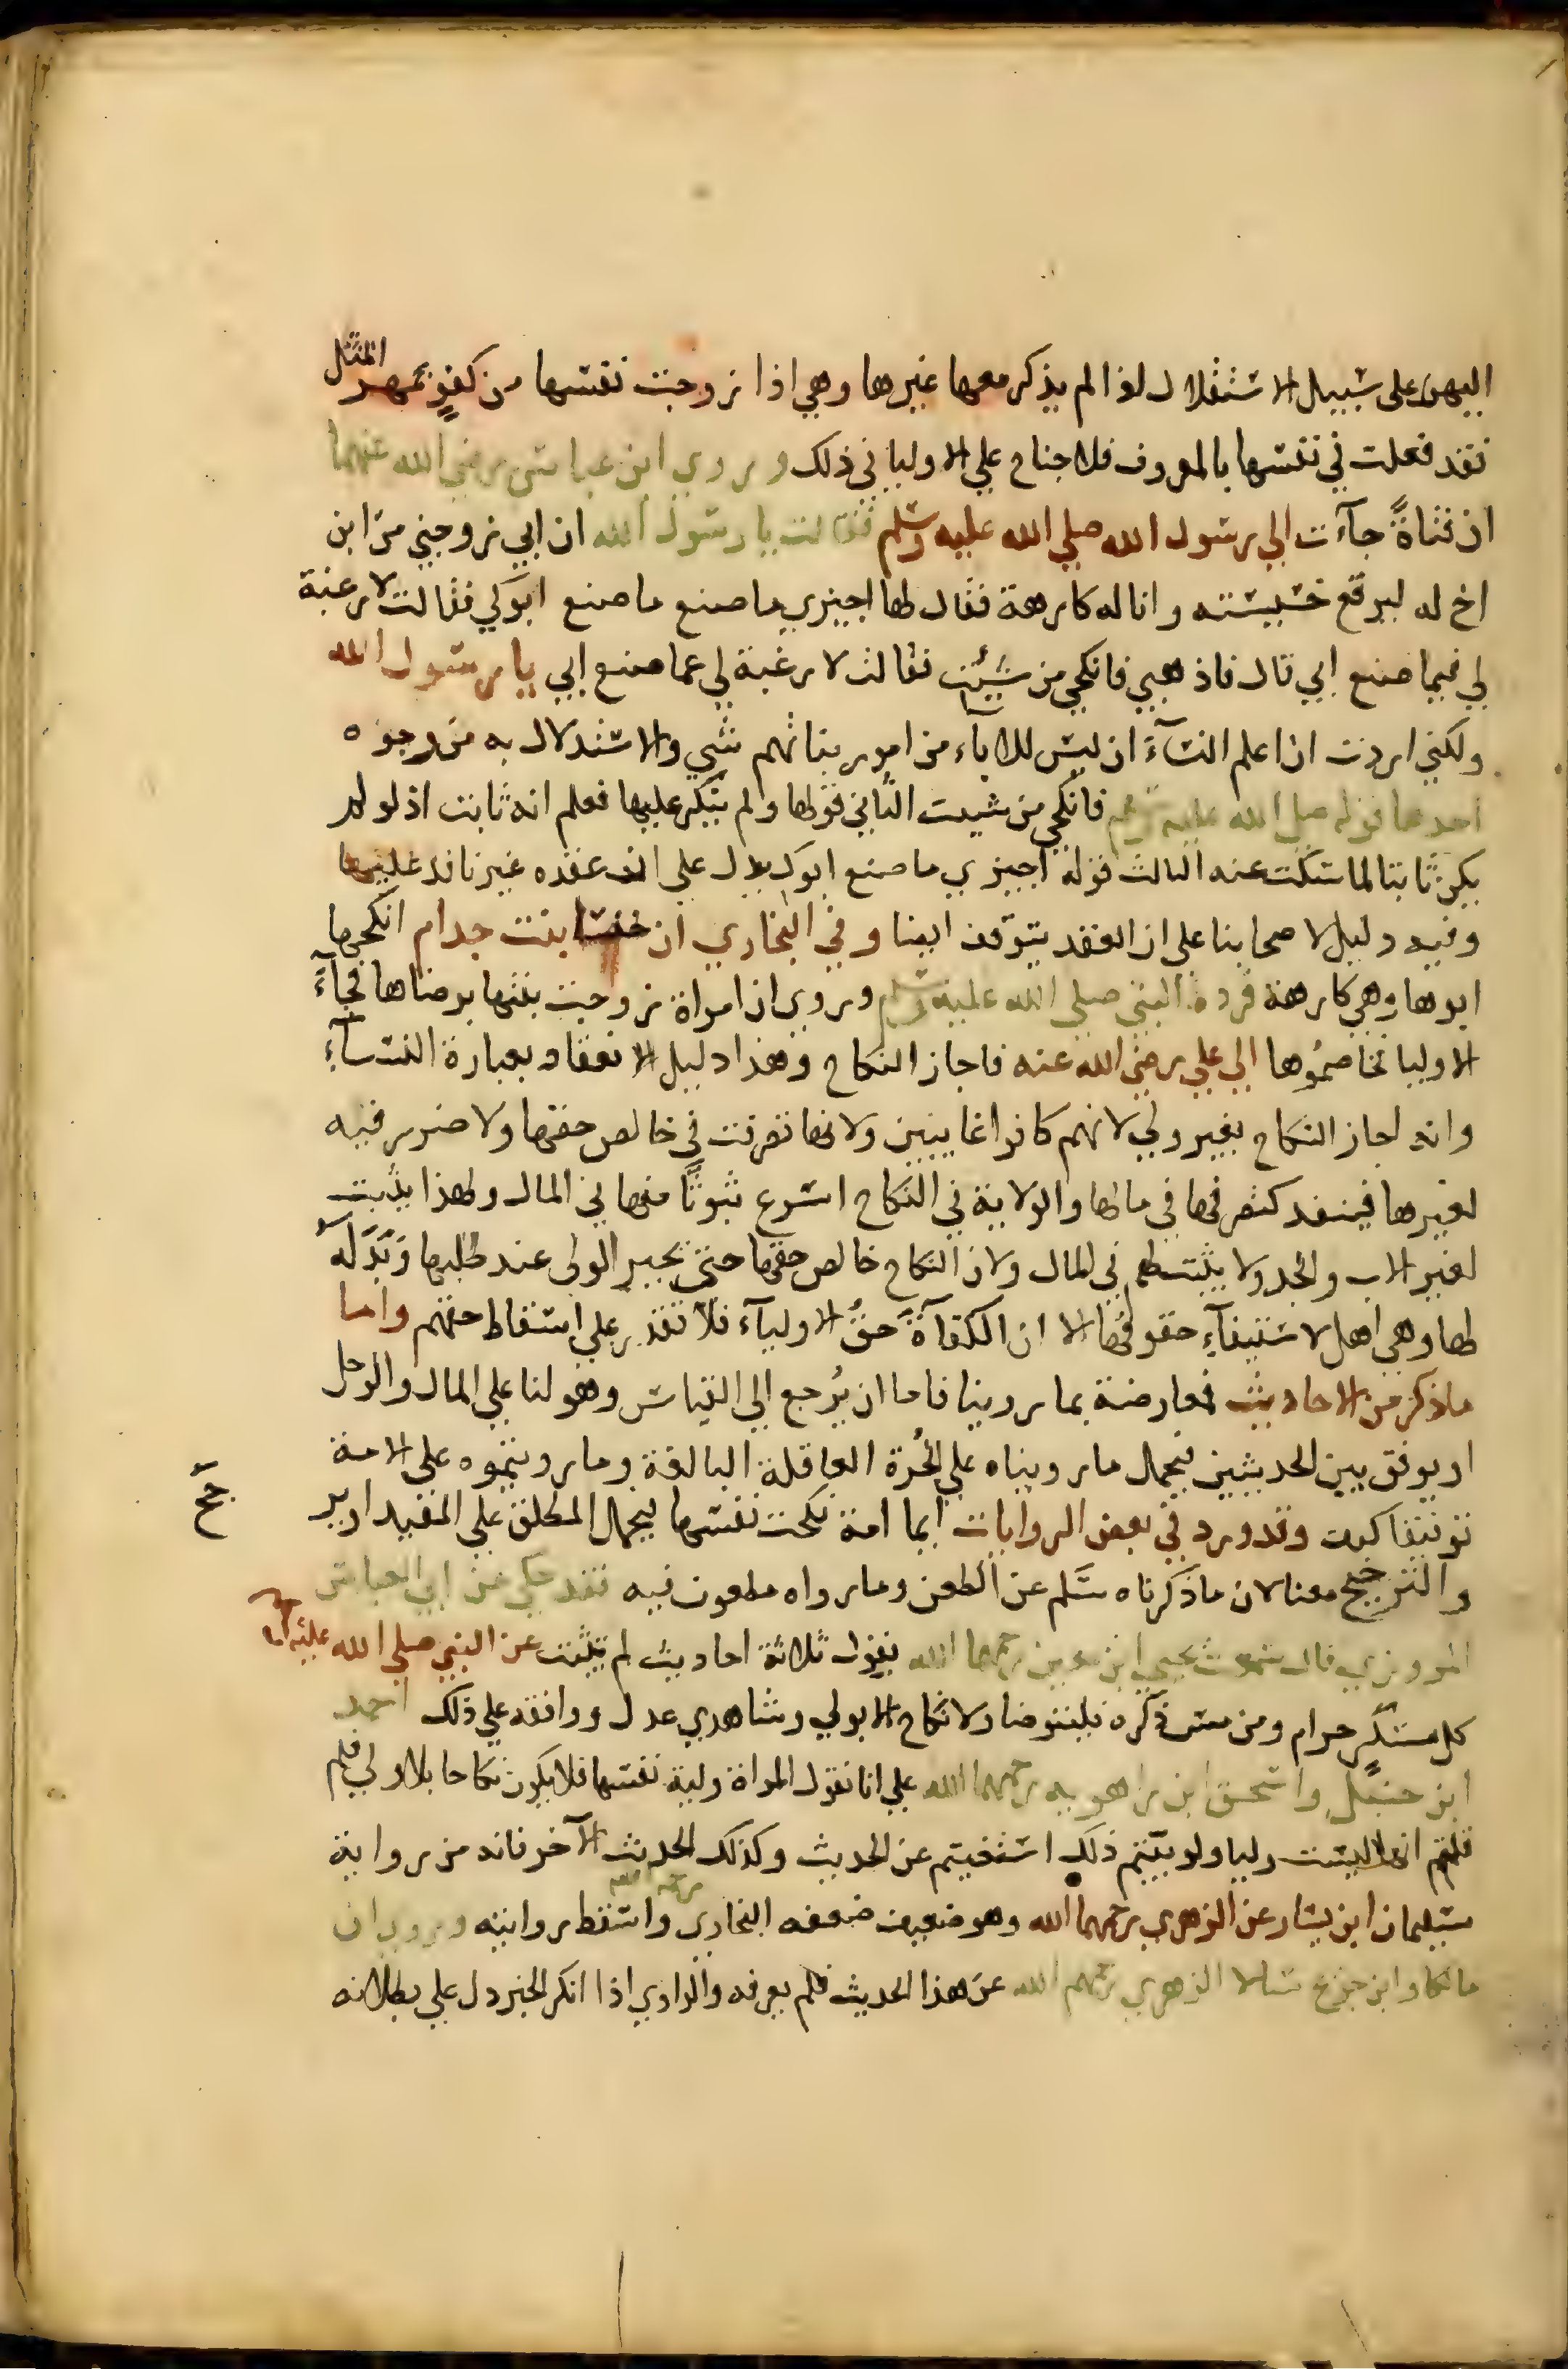 اليهن على سبيل الاستقلال اذا لم يذكر معها غيرها وهي اذا زوجت نفسها من كفوٍ بمهر المثل
فقد فعلت في نفسها بالمعروف فلا جناح علي الاوليا في ذلك وروي ابن عباس رضي الله عنهما
ان فتاةً جآءت الي رسول الله صلي الله عليه وسلم فقالت يا رسول الله ان ابي زوجني من ابن
اخ له ليرفع خسيسته وانا له كارهة فقال لها اجيزي ما صنع ما صنع ابوكي فقالت لا رغبة
لي فيما صنع ابي قال فاذهبي فانكحي من شئت فقالت لا رغبة لي عما صنع ابي يا رسول الله
ولكني اردت ان اعلم النسآءَ ان ليس للاباء من امور بناتهم شي والاستدلال به من وجوه
احدها قوله صلي الله عليه وسلم فانكحي من شيت الثاني قولها ولم ينكر عليها فعلم انه ثابت اذ لو لم
يكن ثابتا لما سكت عنه الثالث قوله اجيزي ما صنع ابوك يدل على ان عقده غير نافد عليها
وفيه دليل لاصحابنا على ان العقد يتوقف ايضا وفي البخاري ان خنسا بنت جدام انكحها
ابوها وهي كارهة فرده النبي صلي الله عليه وسلم وروي ان امراة زوجت بنتها برضاها فجآءَ
الاوليا فخاصموها الي علي رضي الله عنه فاجاز النكاح وهذا دليل الانعقاد بعبارة النسآءِ
وانه اجاز النكاح بغير ولي لانهم كانوا غايبين ولانها تصرفت في خالص حقها ولا ضرر فيه
لغيرها فينفد كتصرفها في مالها والولاية في النكاح اسرع ثبوتًا منها في المال ولهذا يثبت
لغير الاب والجد ولا يثبت لهم في المال ولان النكاح خالص حقها حتى يجبر الولى عند طلبها وبدله
لها وهي اهل لاستيفآءِ حقوقها الا ان الكفآةَ حقُ الاوليآء فلا تقدر علي اسقاط حقهم واما
ماذكر من الاحاديث فمعارضة بما روينا فاما ان يُرجع الي القياس وهو لنا علي المال والرجل
او يوفق بين الحديثين فيحمل ما رويناه علي الحُرة العاقلة البالغة وما رويتموه علي الامة
توفيقا كيف وقد ورد في بعض الروايات ايما امة نكحت نفسها ليحمل المطلق علي المقيد او يرجح
والترجيح معنا لان ما ذكرناه سَلم عن الطعن وما رواه مطعون فيه فقد حكي عن ابي العباس
المروزي قال سمعت يحيي ابن معين رحمهما الله يقول ثلاثة احاديث لم تثبت عن النبي صلي الله عليه
كل مسكرٍ حرام ومن مس ذكره فليتوضا ولا نكاح الا بولي وشاهدي عدل ووافقه علي ذلك احمد
ابن حنبل واسحق ابن راهويه رحمهما الله علي انا نقول المراة ولية نفسها فلا يكون نكاحا بلا ولي فلم
قلتم انها ليست وليا ولو بينتم ذلك استغنيتم عن الحديث وكذلك الحديث الآخر فانه من رواية
سليمان ابن يسار عن الزهري رحمهما الله وهو ضعيف ضعفه البخاري رحمه الله واسقط روايته وروي ان
مالكا وابن جريج سالا الزهري رحمهم الله عن هذا الحديث فلم يعرفه والراوي اذا انكر الخبر دل علي بطلانه